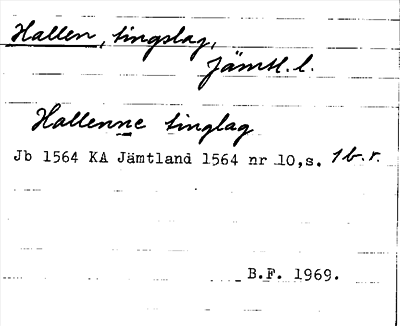 Hallen, tingslag,
Jämtl. l.
Hallenne tinglag
Jb 1564 KA Jämtland 1564 nr 10, s. 1 b. r.
B.F. 1969.